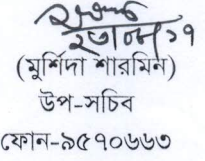 (মুর্শিদা শারমিন)
উপ-সচিব
ফোন-৯৫৭০৬৬৩